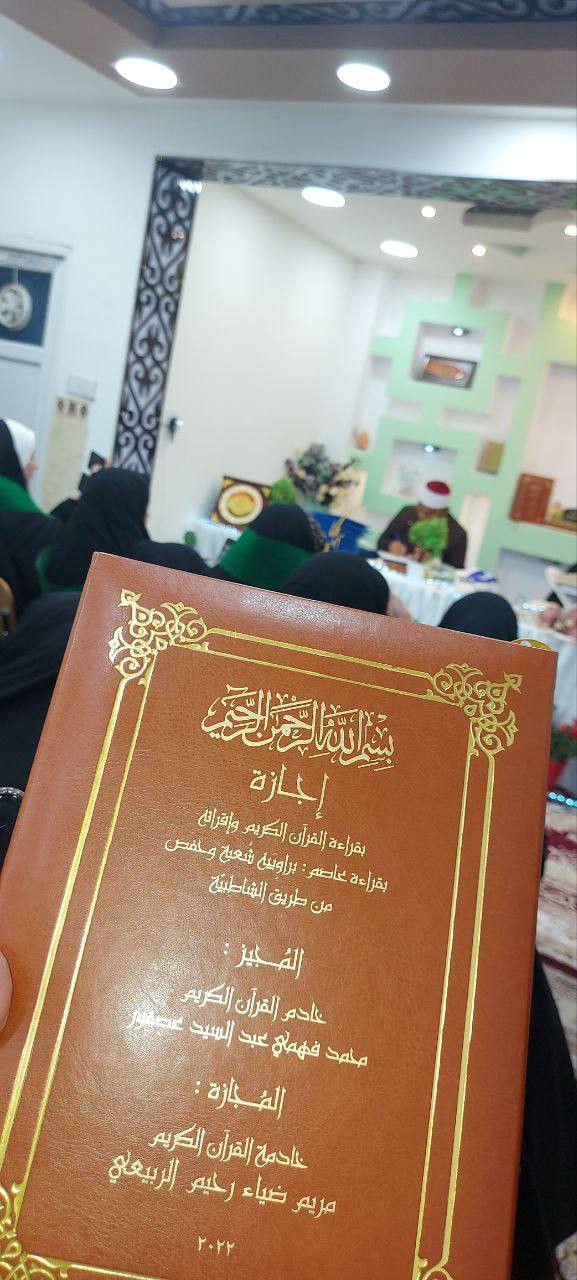 بِسْمِ اللَّهِ الرَّحْمَنِ الرَّحِيمِ
إجازة
بقراءة القرآن الكريم وإقرائه
بقراءة عاصم: براويَيه شُعبة وحفص
من طريق الشاطبيّة
المُجيز :
خادم القرآن الكريم
محمد فهمي عبد السيد عصفور
المُجازة :
خادمة القرآن الكريم
مريم ضياء رحيم الربيعي
٢٠٢٢